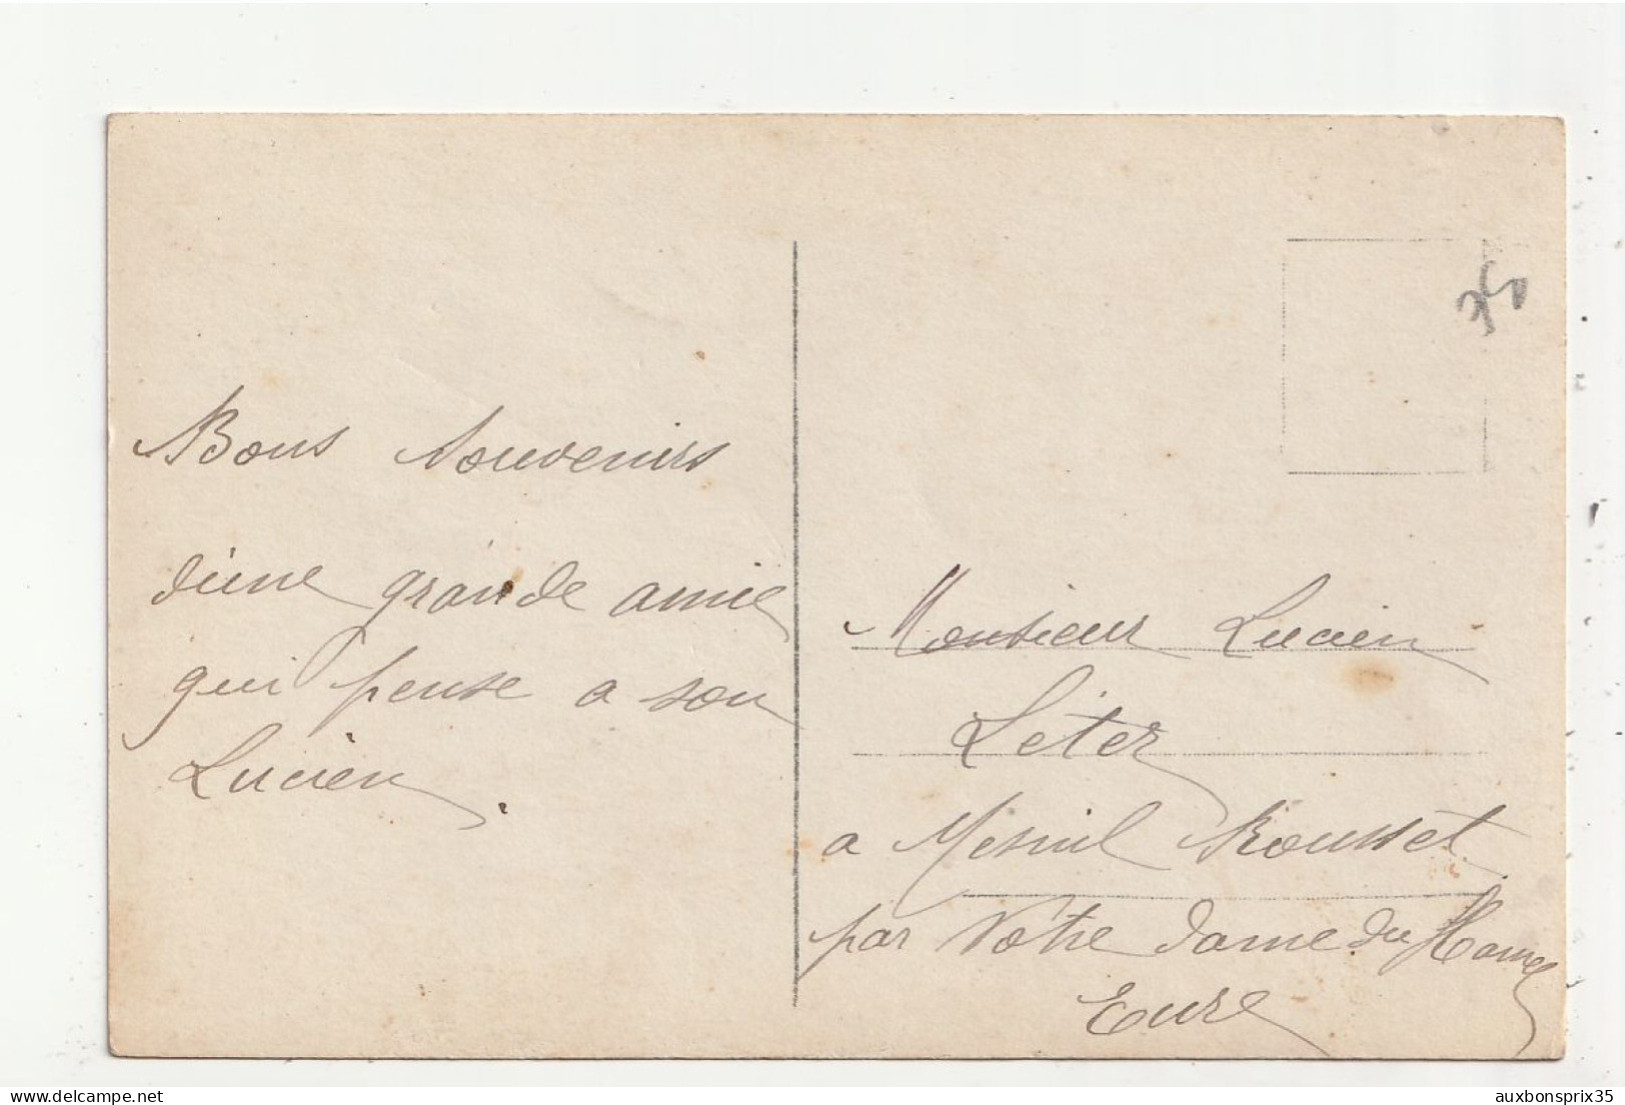 Bons Souvenirs
d'une grande amie
qui pense a son
Lucien.
Monsieur Lucien
Leter
a Mesnil Rousset
par Nôtre Dame du Hamel
Eure
delcampe.net
auxbonsprix35